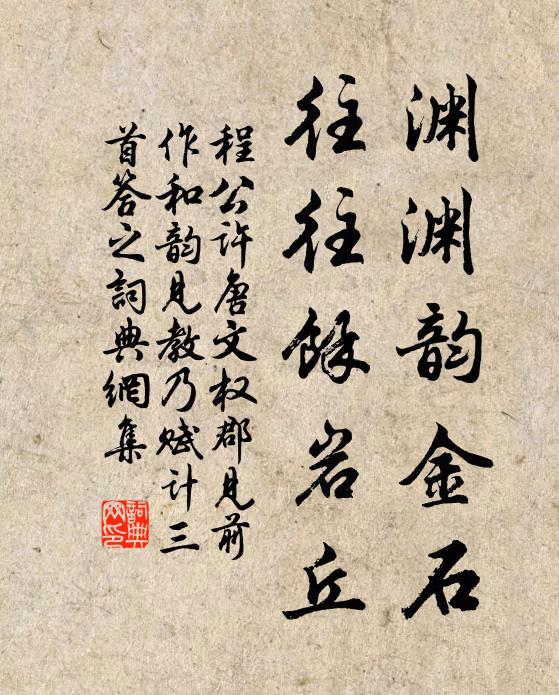 渊渊韵金石
往往餘岩丘
程公许唐文权郡见前
作和韵见教乃赋计三
首答之詞典網集
詞典网印